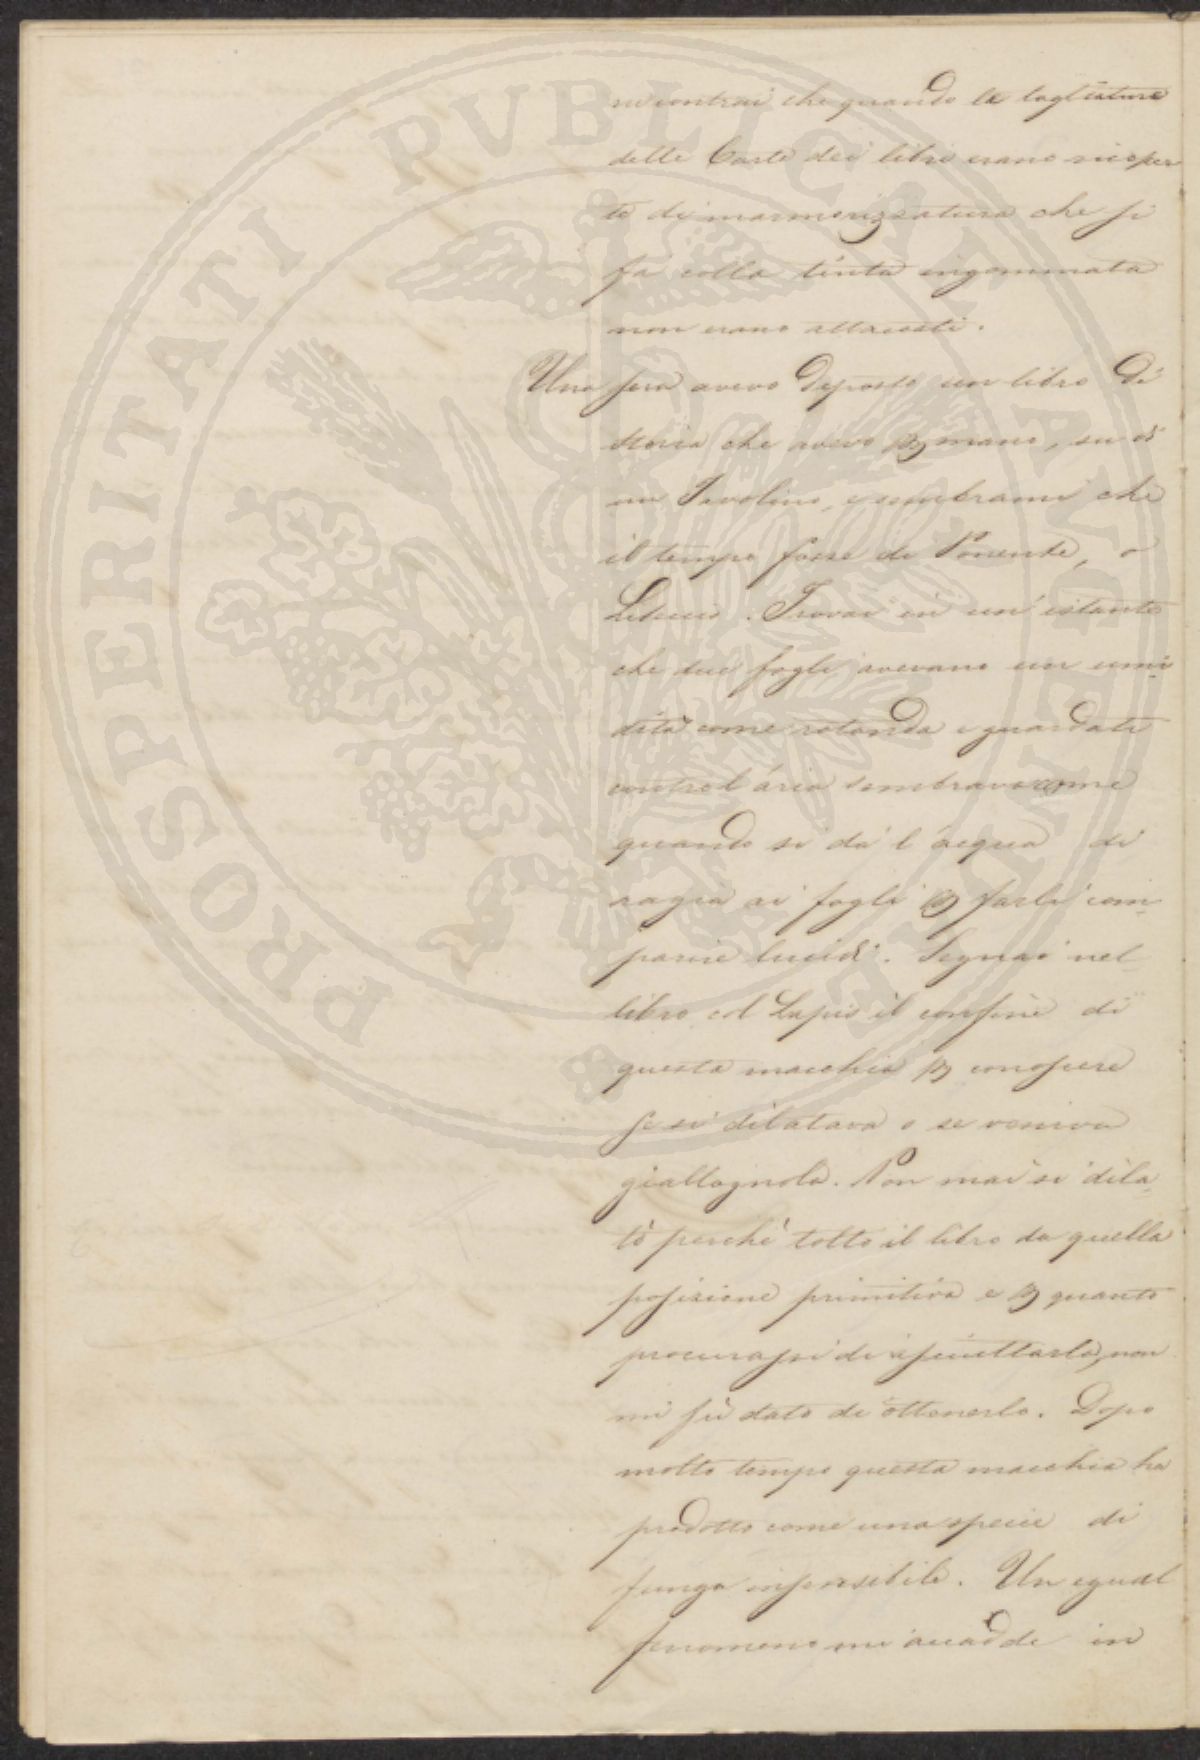 riscontrai che quando le tagliature
delle Carte dei libri erano ricoper
te di marmorizzatura che si
fà colla tinta ingommata
non erano attaccati.
Una sera avevo deposto un libro di
storia che avevo p mano, su di
un Tavolino, e sembrami che
il tempo fosse di Ponente, o
Libeccio. Trovai in un'istante
che due fogli avevano un umi
dità come rotonda e guardati
contro l'aria sembrava come
quando si dà l'acqua di
ragia ai fogli p farli com
parire lucidi. Segnai nel
libro col Lapis il confine di
questa macchia p conoscere
se si dilatava o se veniva
giallognola. Non mai si dila
tò perchè tolto il libro da quella
posizione primitiva e p quanto
procurassi di rimetterlo, non
mi fù dato di ottenerlo. Dopo
molto tempo questa macchia ha
prodotto come una specie di
fungo insensibile. Un egual
fenomeno mi accadde in
PROSPERITATI PUBLICAE AUGENDAE